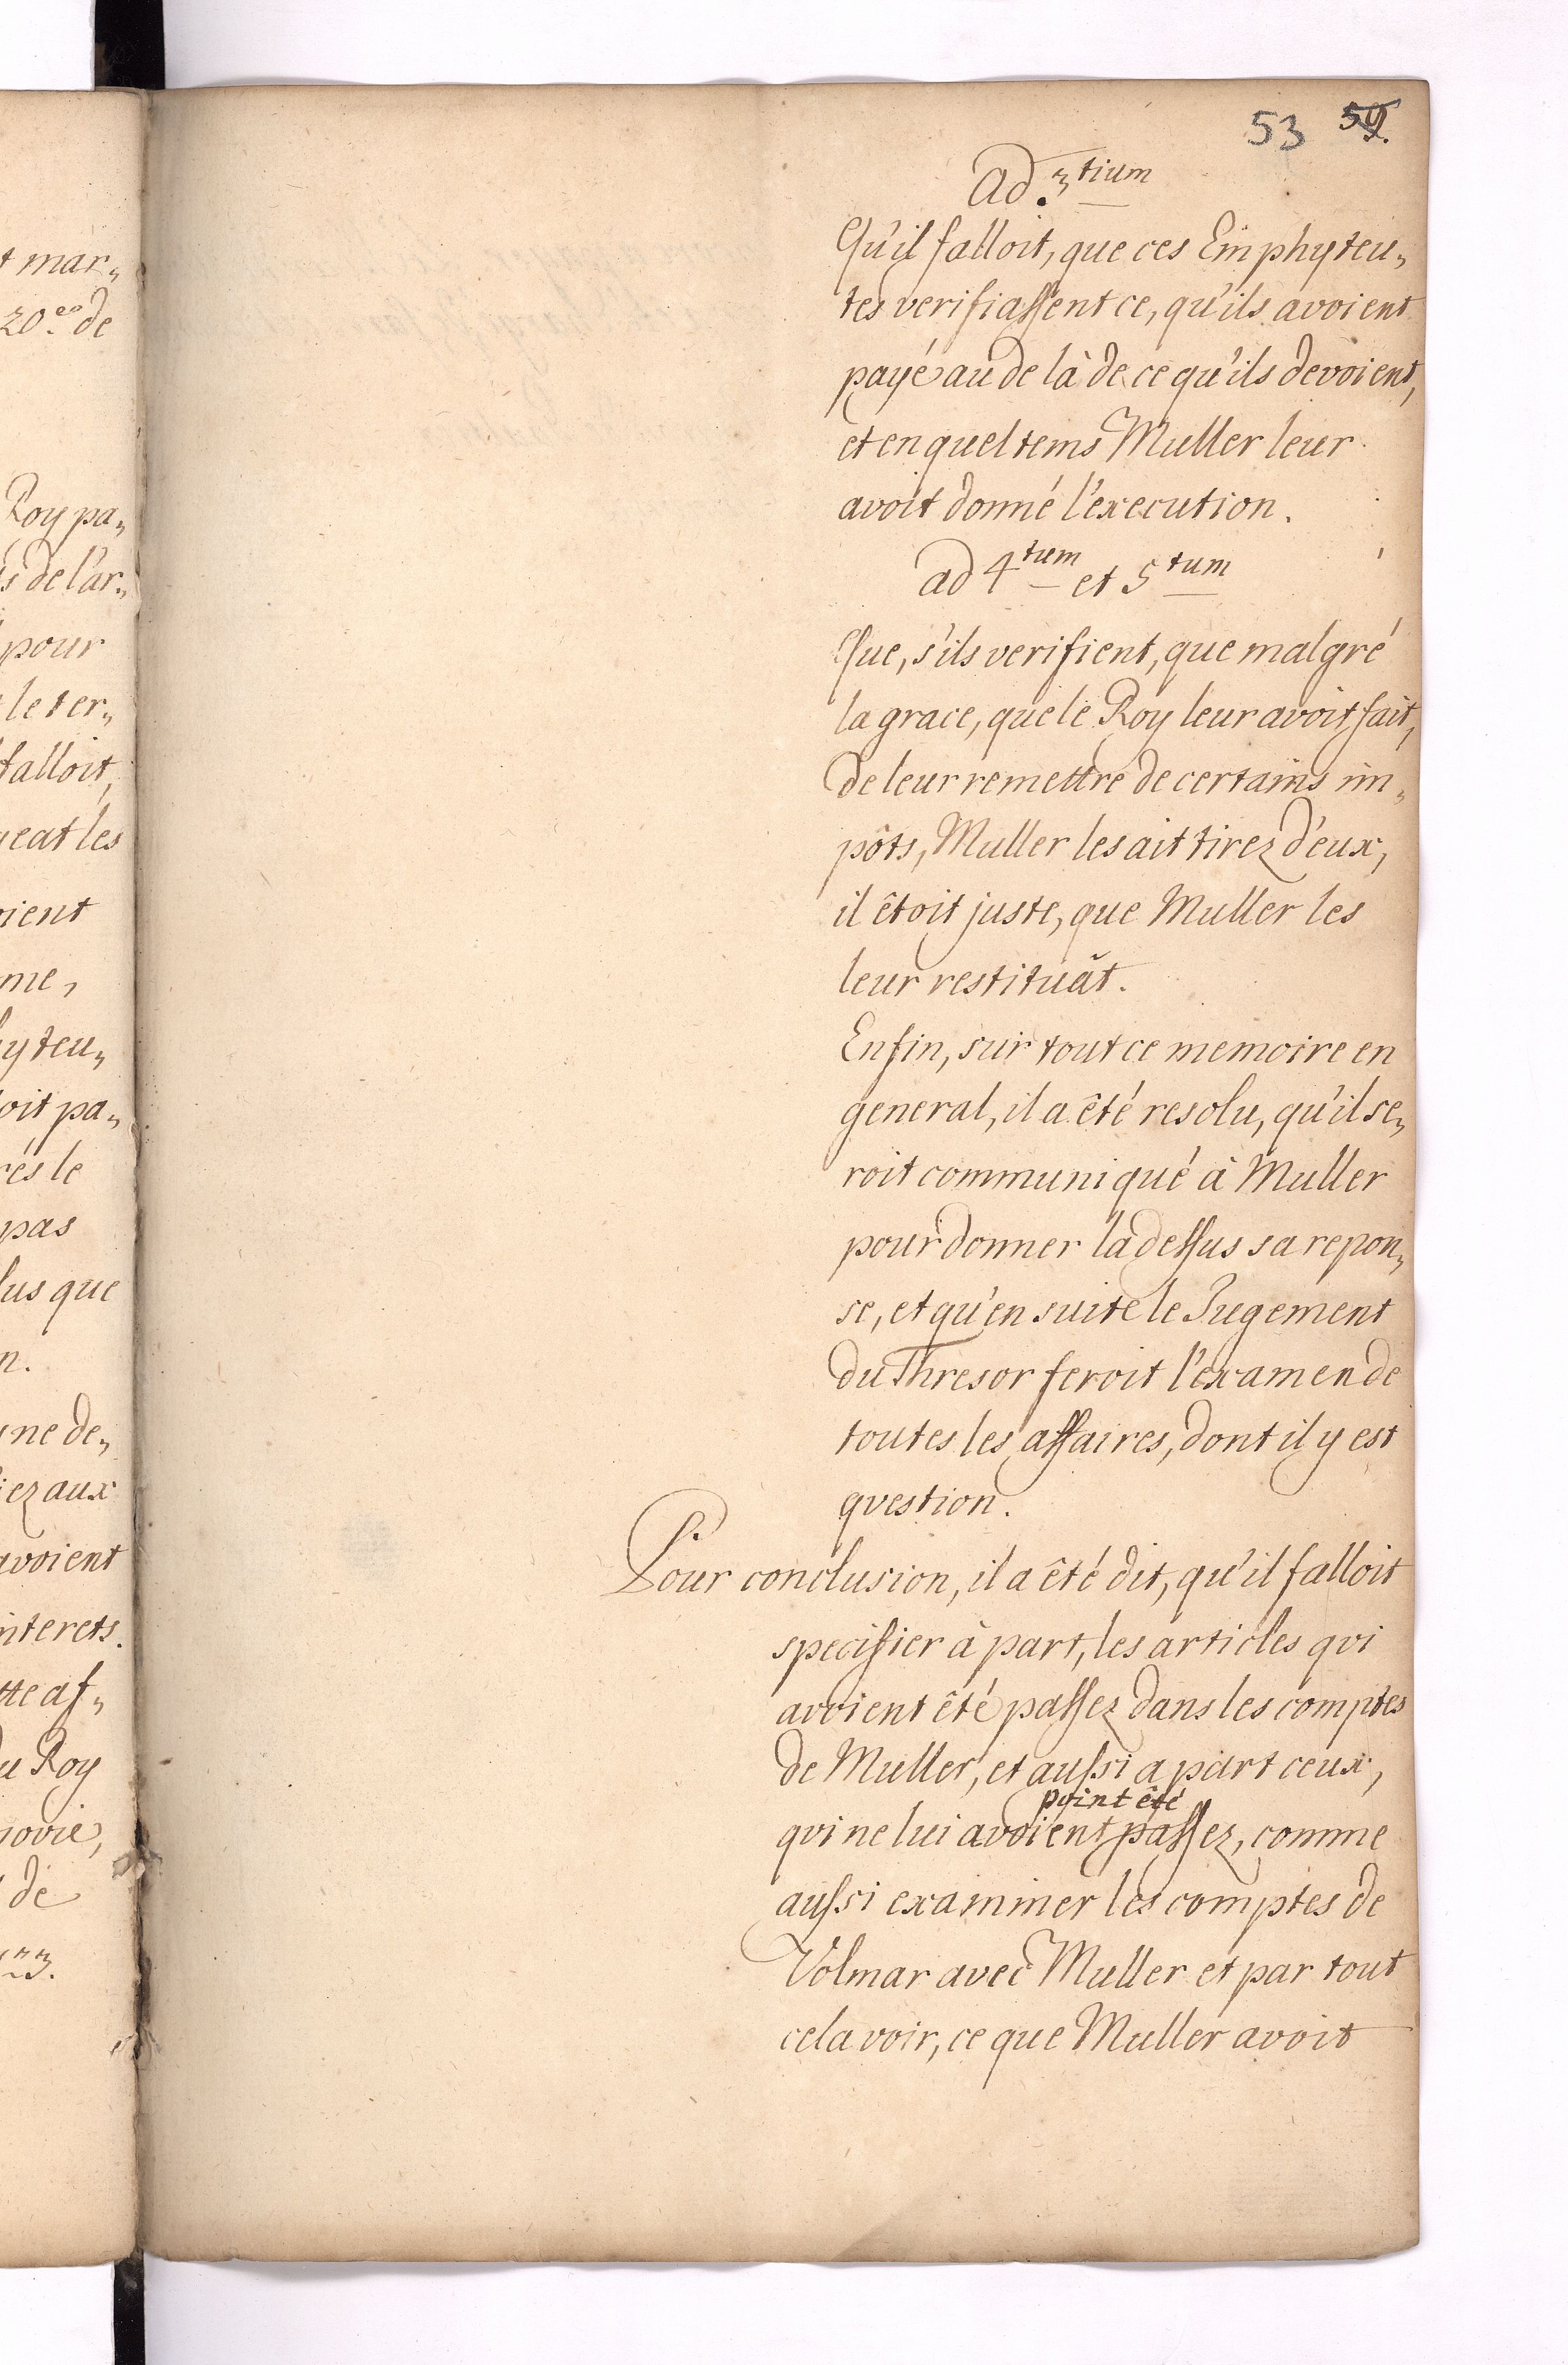 t mar„
20.es de
Roy pa„
s de l'ar„
pour
le ter„
falloit,
geat les
oient
me,
hyteu„
oit pa„
rés le
pas
lus que
n.
ne de„
iez aux
avoient
interets.
tte af„
du Roy
novie,
de
53 59.
ad. 3tium
Qu'il falloit, que ces Emphyteu„
tes verifiassent ce, qu'ils avoient
payé au de là de ce qu'ils devoient,
et en quel tems Muller leur
avoit donné l'execution.
ad 4tum et 5tum
Que, s'ils verifient, que malgré
la grace, que le Roy leur avoit fait,
de leur remettre de certains im„
pôts, Muller les ait tirez d'eux,
il êtoit juste, que Muller les
leur restituât.
Enfin, sur tout ce memoire en
general, il a êté resolu, qu'il se„
roit communiqué à Muller
pour donner la dessus sa repon„
se, et qu'en suite le Jugement
du Thresor feroit l'examen de
toutes les affaires, dont il y est
question.
Pour conclusion, il a êté dit, qu'il falloit
specifier à part, les articles qui
avoient êté passez dans les comptes
de Muller, et aussi a part ceux,
point êté
qui ne lui avoient passez, comme
aussi examiner les comptes de
Volmar avec Muller et par tout
cela voir, ce que Muller avoit